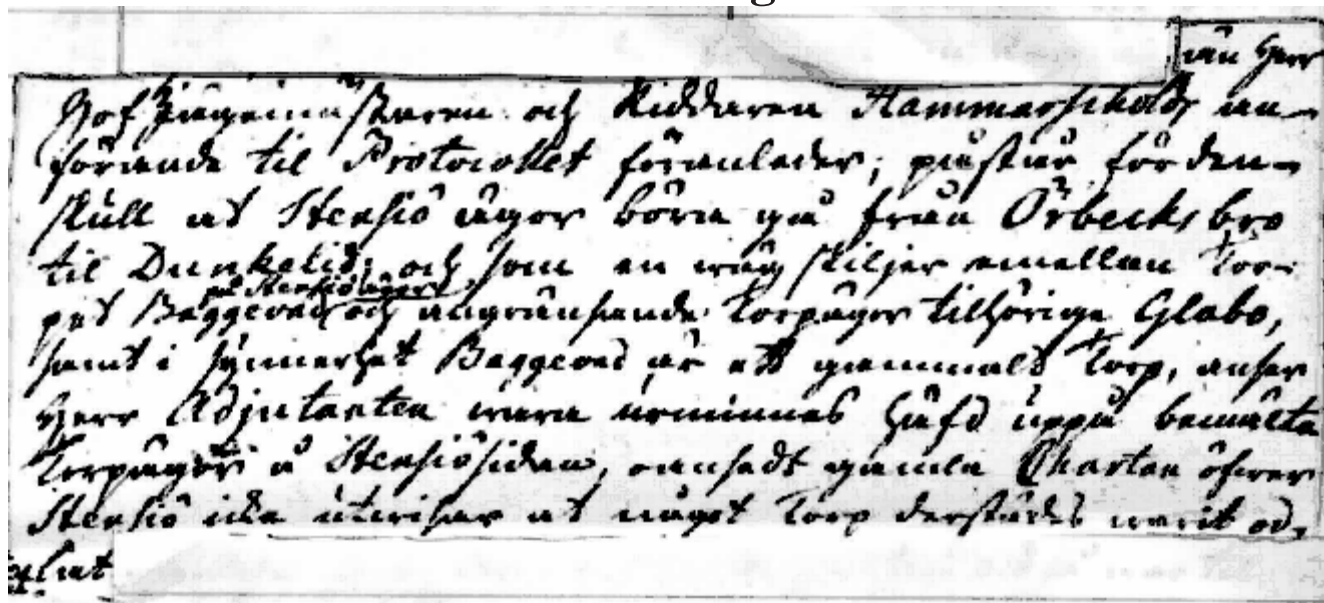 än Herr
Hof Jägemästaren och Riddaren Hammarschölds an-
förande til Protocollet föranleder; påstår för den-
skull at Stensiö ägor böra gå från Örbecks bro
til Dunkelid; och som en wäg skiljer emellan Tor-
på Stensiö ägor
pet Baggeved och angränsande Torpägor tillhörige Glabo,
samt i synnerhet Baggeved är ett gammalt Torp, anser
Herr Adjutanten wara urminnes häfd uppå bemälta
Torpägor å Stensiösidan, oansedt gamla Chartan öfwer
Stensiö icke utwisar at något Torp derstädes warit od,
lat